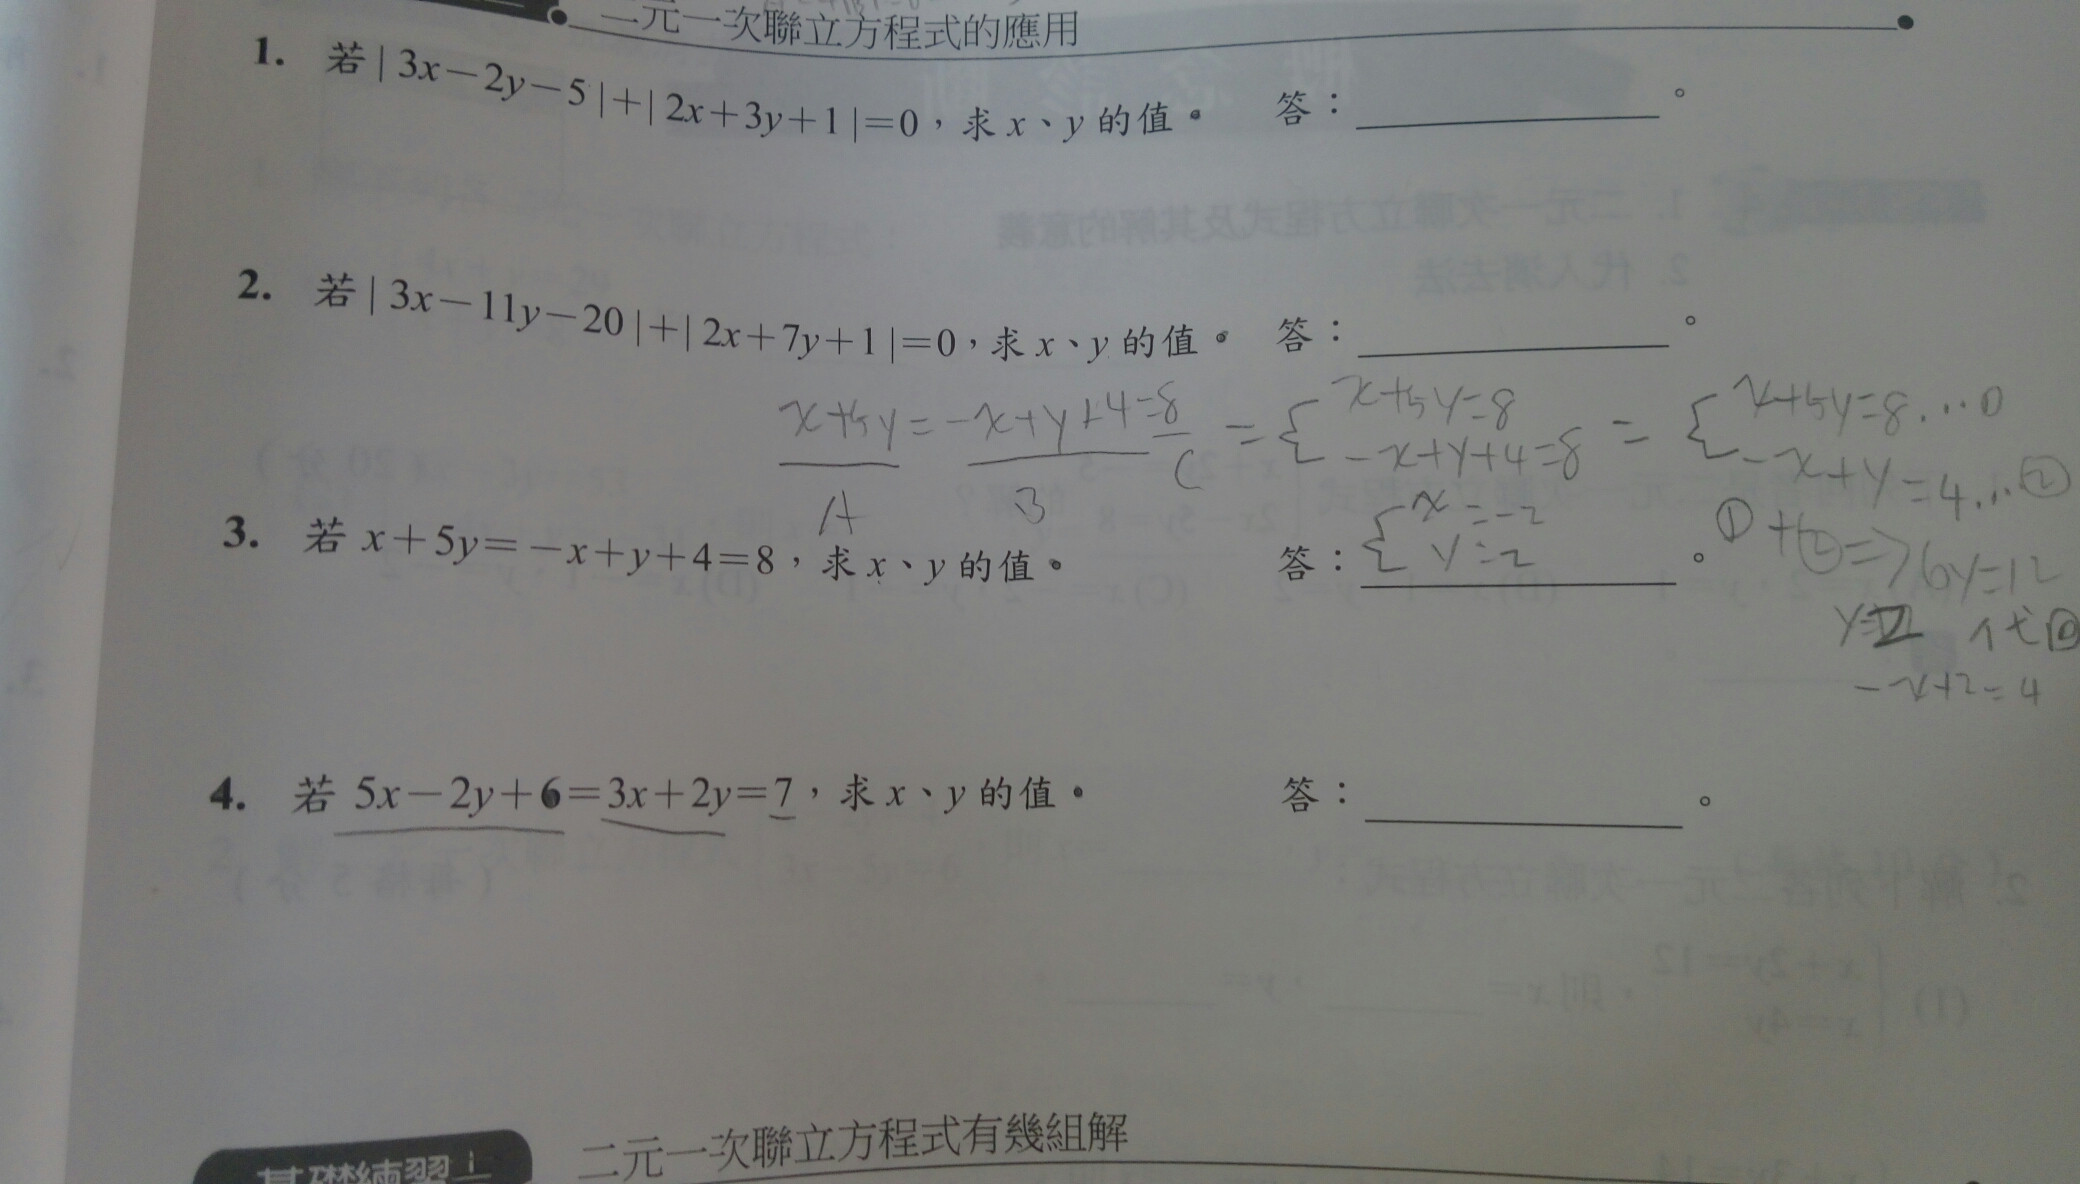 二元一次聯立方程式的應用
1. 若|3x－2y－5|＋|2x＋3y＋1|＝0，求 x、y 的值。 答：。
2. 若|3x－11y－20|＋|2x＋7y＋1|＝0，求 x、y 的值。 答：。
x+5y=-x+y+4=8 = { x+5y=8 = { x+5y=8...①
-x+y+4=8 -x+y=4...②
A B C
3. 若 x＋5y＝－x＋y＋4＝8，求 x、y 的值。 答：{ x=-2 y=2 。
①+②=>6y=12
y=2 代②
-x+2=4
4. 若 5x－2y＋6＝3x＋2y＝7，求 x、y 的值。 答：。
基礎練習 二元一次聯立方程式有幾組解